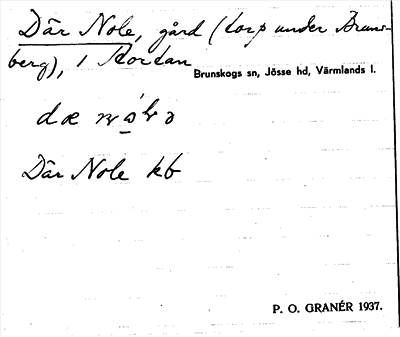 Där Nole, gård (torp under Bruns-
berg), i Kortan
Brunskogs sn, Jösse hd, Värmlands l.
Där Nole kb
P. O. GRANÉR 1937.